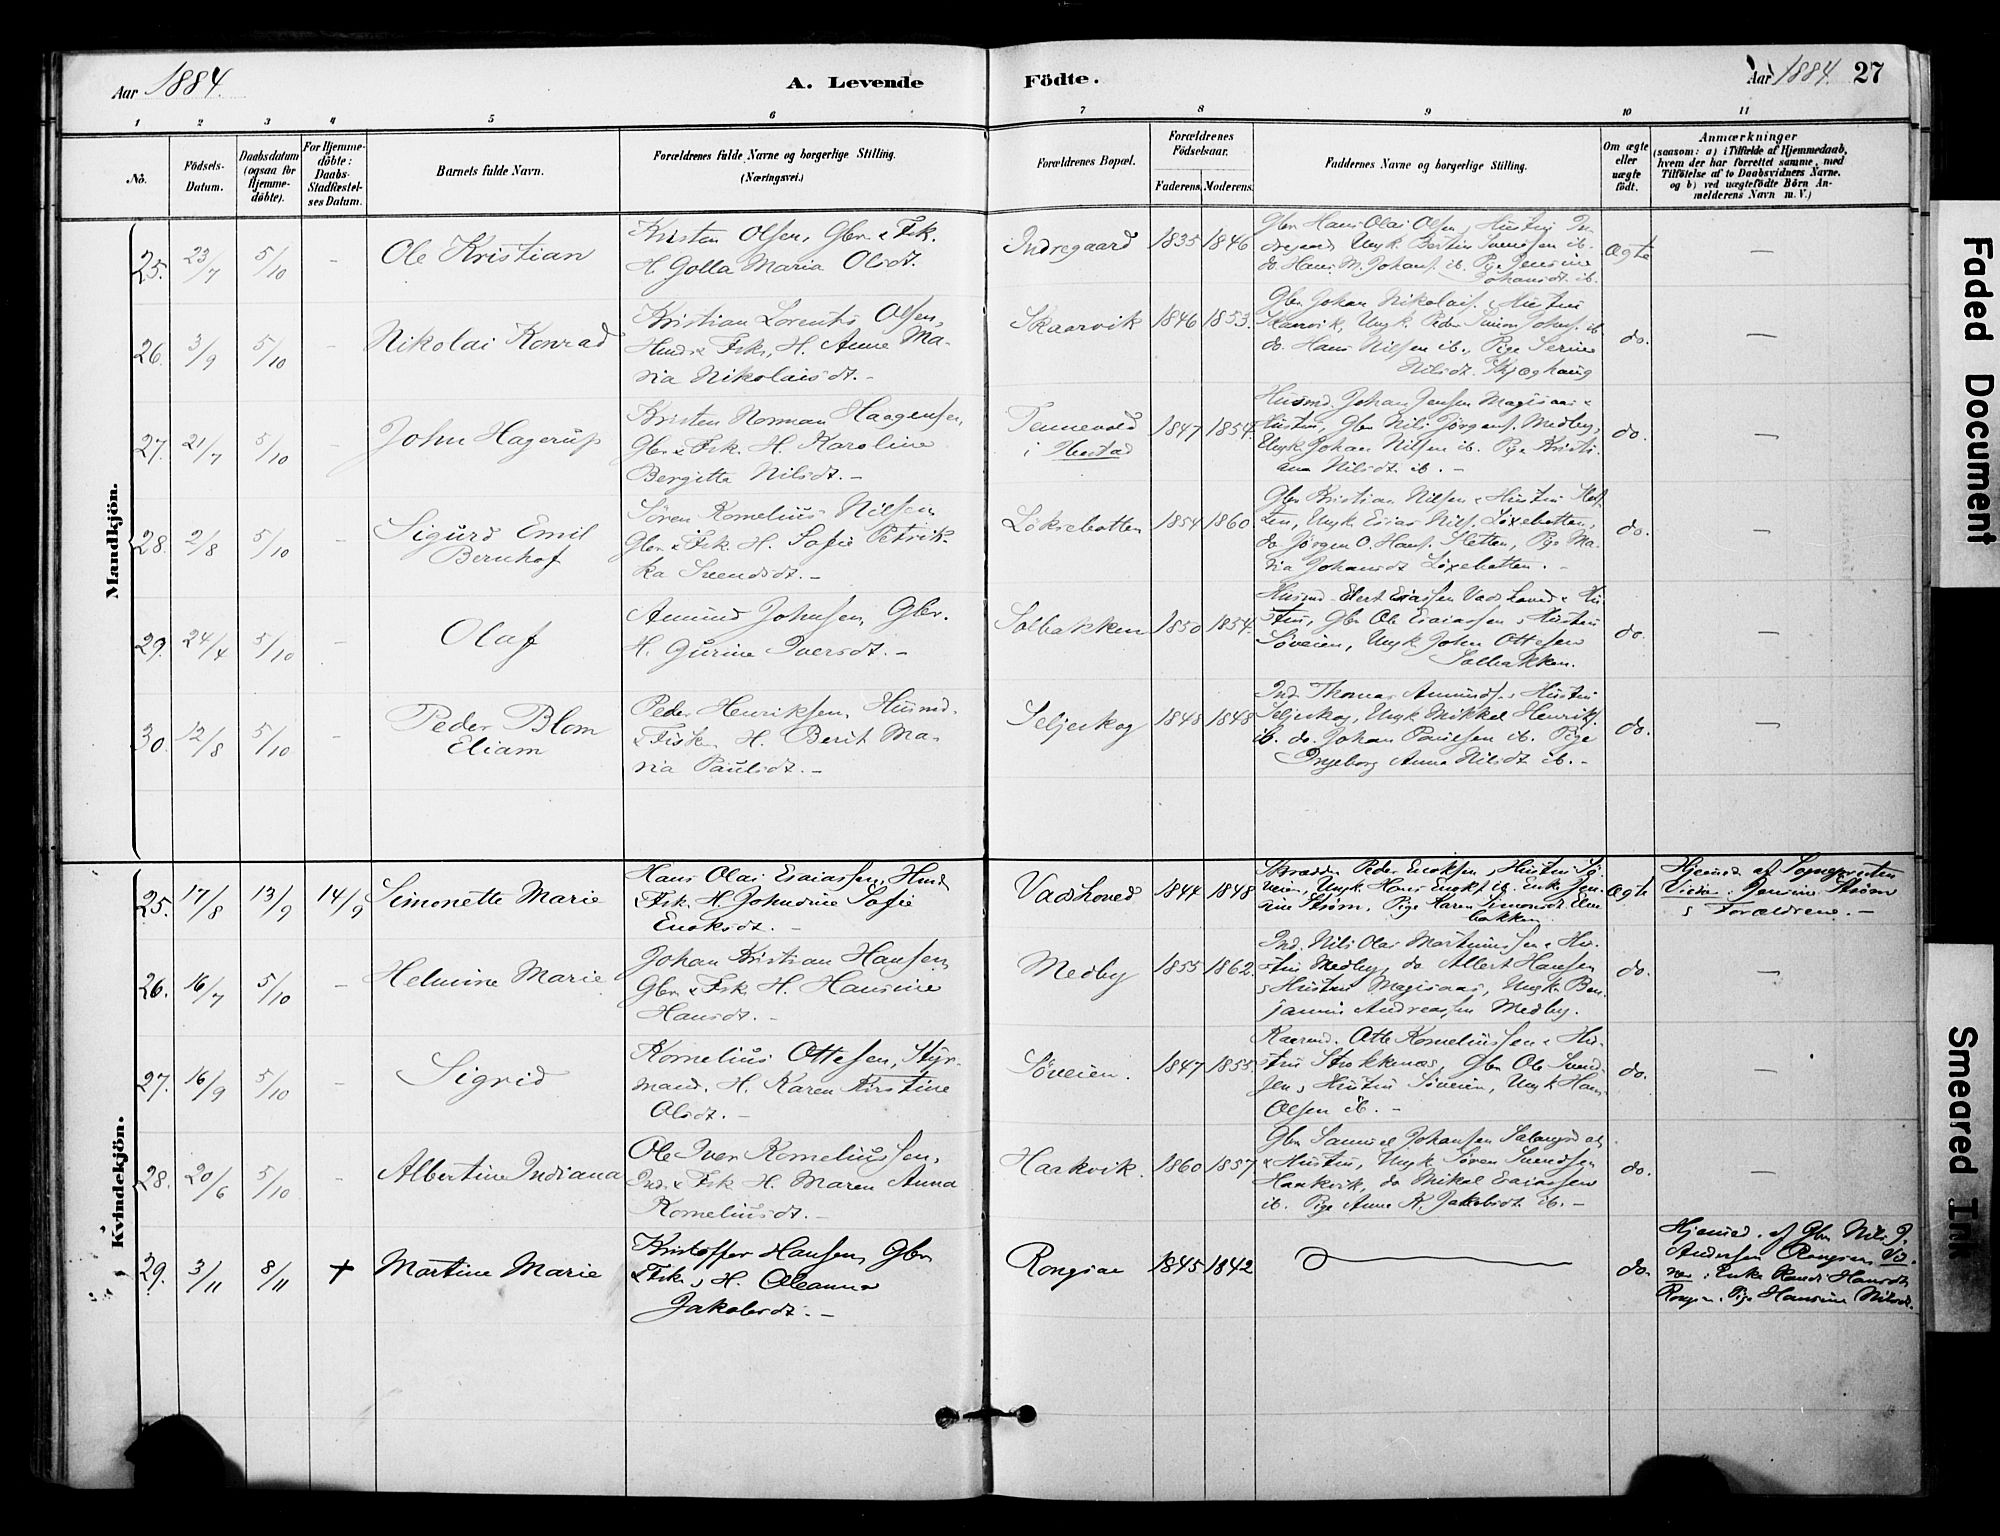 Aar 1884.
A. Levende
Födte.
Aar 1884. 27
1 2 3 4 5 6 7 8 9 10 11
No.
Födsels-
Datum.
Daabsdatum
(ogsaa for
Hjemme-
döbte).
For Hjemme-
döbte:
Daabs-
Stadfæstel-
ses Datum.
Barnets fulde Navn.
Forældrenes fulde Navne og borgerlige Stilling.
(Næringsvei.)
Forældrenes Bopæl.
Forældrenes
Födselsaar.
Faderens. Moderens.
Faddernes Navne og borgerlige Stilling.
Om ægte
eller
uægte
födt.
Anmærkninger
(saasom: a) i Tilfælde af Hjemmedaab,
hvem der har forrettet samme, med
Tilföielse af to Daabsvidners Navne.
og b) ved uægtefödte Börn An-
melderens Navn m.V.)
Mandkjön.
25. 23/7 5/10 - Ole Kristian
Kristen Olsen, Gbr. & Fsk.
H. Golla Maria Olsdt.
Indregaard 1835 1846
Gbr Hans Olai Olsen, Hustru In-
dregaard, Ungk. Bertin Svendsen ib.
do. Hans M. Johans. ib. Pige Jensine
Johansdt ib.
Ægte -
26. 3/9 5/10 - Nikolai Konrad
Kristian Lorents Olsen,
Husm & Fsk, H. Anne Ma-
ria Nikolaisdt. -
Skaarvik 1846 1853.
Gbr. Johan Nikolais. & Hustru
Skaarvik, Ungk. Peder Simon Johns. ib
do. Hans Nilsen ib., Pige Serine
Nilsdt.
do. -
27. 21/7 5/10 - John Hagerup
Kristen Norman Haagensen,
Gbr & Fsk. H. Karoline
Bergitta Nilsdt. -
Tennevold
i Ibestad
1847 1854.
Husmd. Johan Jensen Magisaas &
Hustru, Gbr Nils Jörgens. Medby,
Ungk. Johan Nilsen ib. Pige Kristi-
ana Nilsdt ib. -
do. -
28. 2/8 5/10 - Sigurd Emil
Bernhof
Sören Kornelius Nilsen
Gbr & Fsk. H. Sofie Petrik-
ka Svendsdt. -
Löksebotten 1854 1860.
Gbr Kristian Nilsen & Hustru Slet-
ten, Ungk. Esias Nils. Löxebotten,
do Jörgen O. Hans. Sletten, Pige Ma-
ria Johansdt Löxebotten. -
do. -
29. 24/4 5/10 - Olaf
Amund Johnsen, Gbr.
H. Gurine Iversdt. -
Solbakken 1850 1854.
Husmd. Elert Esiassen Vadshoved & Hu-
stru, Gbr Ole Esaiassen & Hustru
Söveien, Ungk. John Ottesen
Solbakken.
do. -
30. 12/8 5/10 - Peder Blom
Eliam
Peder Henriksen, Husmd.
& Fisk. H. Berit Ma-
ria Paulsdt. -
Seljeskog 1848 1848
Ind. Thomas Amunds. & Hustru
Seljeskog, Ungk Mikkel Henriks.
ib. do. Johan Paulsen ib. Pige
Ingeborg Anna Nilsdt ib. -
do. -
Kvindekjön.
25. 17/8 13/9 14/9 Simonette Marie
Hans Olai Esaiassen, Husmd
& Fsk. H. Johndine Sofie
Enoksdt. -
Vadshoved 1844 1848
Skrædder Peder Enoksen, Hustru Sö-
veien, Ungk Hans Enoks. ib. Enke Jen-
sine Ström, Pige Karen Simonsdt Elve-
bakken
Ægte
Hjemmed. af Sogneprsten
Vidn: Jensine Ström
& Forældrene. -
26. 16/7 5/10 - Helmine Marie
Johan Kristian Hansen,
Gbr & Fsk. H. Hansine
Hansdt. -
Medby 1855 1862.
Ind. Nils Olai Martinussen & Hu-
stru Medby, do Albert Hansen
& Hustru Magisaas, Ungk. Ben-
jamin Andreassen Medby.
do. -
27. 16/9 5/10 - Sigrid
Kornelius Ottesen, Styr-
mand. H. Karen Kirstine
Olsdt. -
Söveien. 1847 1855
Kaarmd. Otte Korneliussen & Hu-
stru Stokkenæs, Gbr Ole Svend-
sen & Hustru Söveien, Ungk Hans
Olsen ib. -
do. -
28. 20/6 5/10 - Albertine Indiana
Ole Iver Korneliussen,
Ind. & Fsk H. Maren Anna
Korneliusdt. -
Haakvik. 1860 1857
Gbr Samuel Johansen
& Hustru, Ungk Sören Svendsen
Haakvik, do Mikal Esaiassen
ib. Pige Anne K. Jakobsdt ib. -
do. -
29. 3/11 8/11 + Martine Marie
Kristoffer Hansen, Gbr
& Fsk, H. Oleanna
Jakobsdt. -
Rongsaa 1845 1842
do.
Hjemmed. af Gbr Nils P.
Andersen Vid-
ner: Enke Randi Hansdt
Pige Hansine Nilsdt.
Faded Document
Smeared Ink